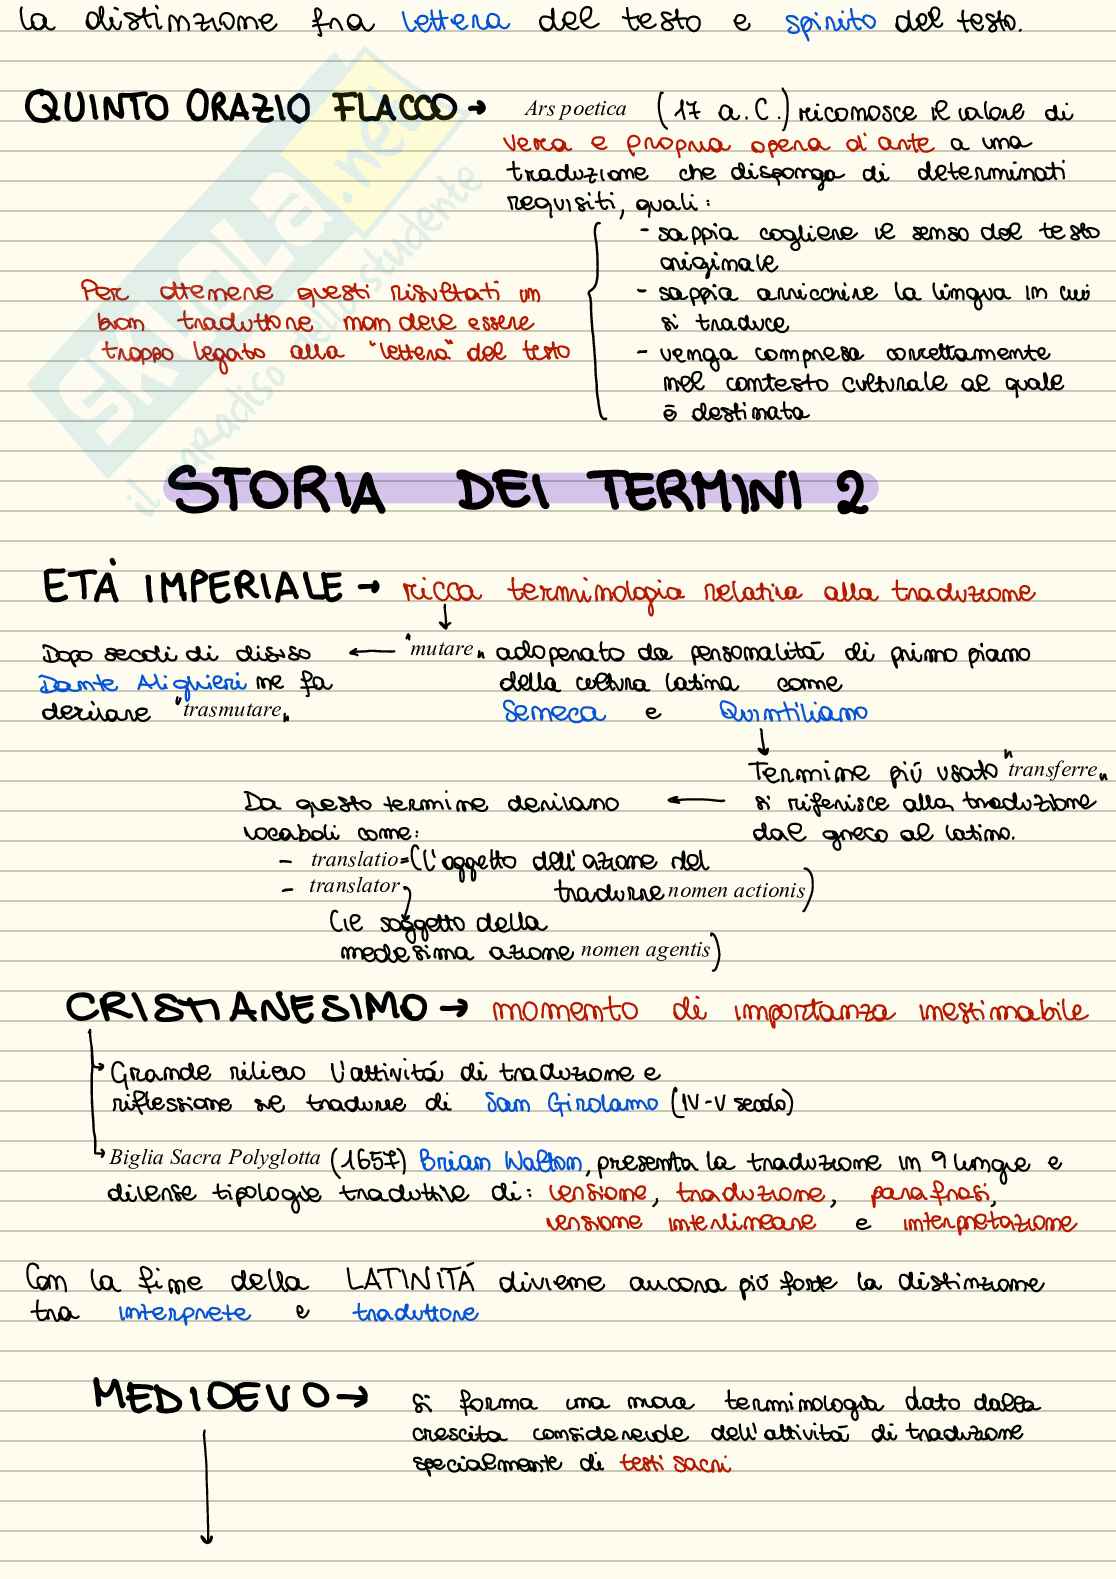 la distinzione fra lettera del testo e spirito del testo.
QUINTO ORAZIO FLACCO → Ars poetica (17 a.C.) riconosce il valore di
vera e propria opera d'arte a una
traduzione che disponga di determinati
requisiti, quali:
- sappia cogliere il senso del testo
originale
- sappia arricchire la lingua in cui
si traduce
- venga compresa correttamente
nel contesto culturale al quale
è destinata
Per ottenere questi risultati un
buon traduttore non deve essere
troppo legato alla "lettera" del testo
SKUOLA.net
il paradiso dello studente
STORIA DEI TERMINI 2
ETÀ IMPERIALE → ricca terminologia relativa alla traduzione
"mutare" adoperato da personalità di primo piano
della cultura latina come
Seneca e Quintiliano
Dopo secoli di disuso
Dante Alighieri ne fa
derivare "trasmutare"
Termine più usato "transferre"
si riferisce alla traduzione
dal greco al latino.
Da questo termine derivano
vocaboli come:
- translatio=(l'oggetto dell'azione del
tradurre nomen actionis)
- translator
(il soggetto della
medesima azione nomen agentis)
CRISTIANESIMO → momento di importanza inestimabile
Grande rilievo l'attività di traduzione e
riflessione sul tradurre di San Girolamo (IV-V secolo)
Biglia Sacra Polyglotta (1657) Brian Walton, presenta la traduzione in 9 lingue e
diverse tipologie traduttive di: versione, traduzione, parafrasi,
versione interlineare e interpretazione
Con la fine della LATINITÁ diviene ancora più forte la distinzione
tra interprete e traduttore
MEDIOEVO → si forma una nuova terminologia dato dalla
crescita considerevole dell'attività di traduzione
specialmente di testi sacri